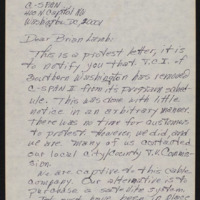 C-SPAN
400 N Capitol NW
Washington DC, 20001
Dear Brian Lamb:
This is a protest letter, it is
to notify you that T.C.I. of
Southern Washington has removed
C-SPAN II from its program sched-
ule. This was done with little
notice in an arbitrary manner,
there was no time for customers
to protest. However, we did, and
we are many of us contacted
our local City/County T.V. Commis-
sion.
We are captive to this cable
company. Our alternative is to
purchase a satellite system